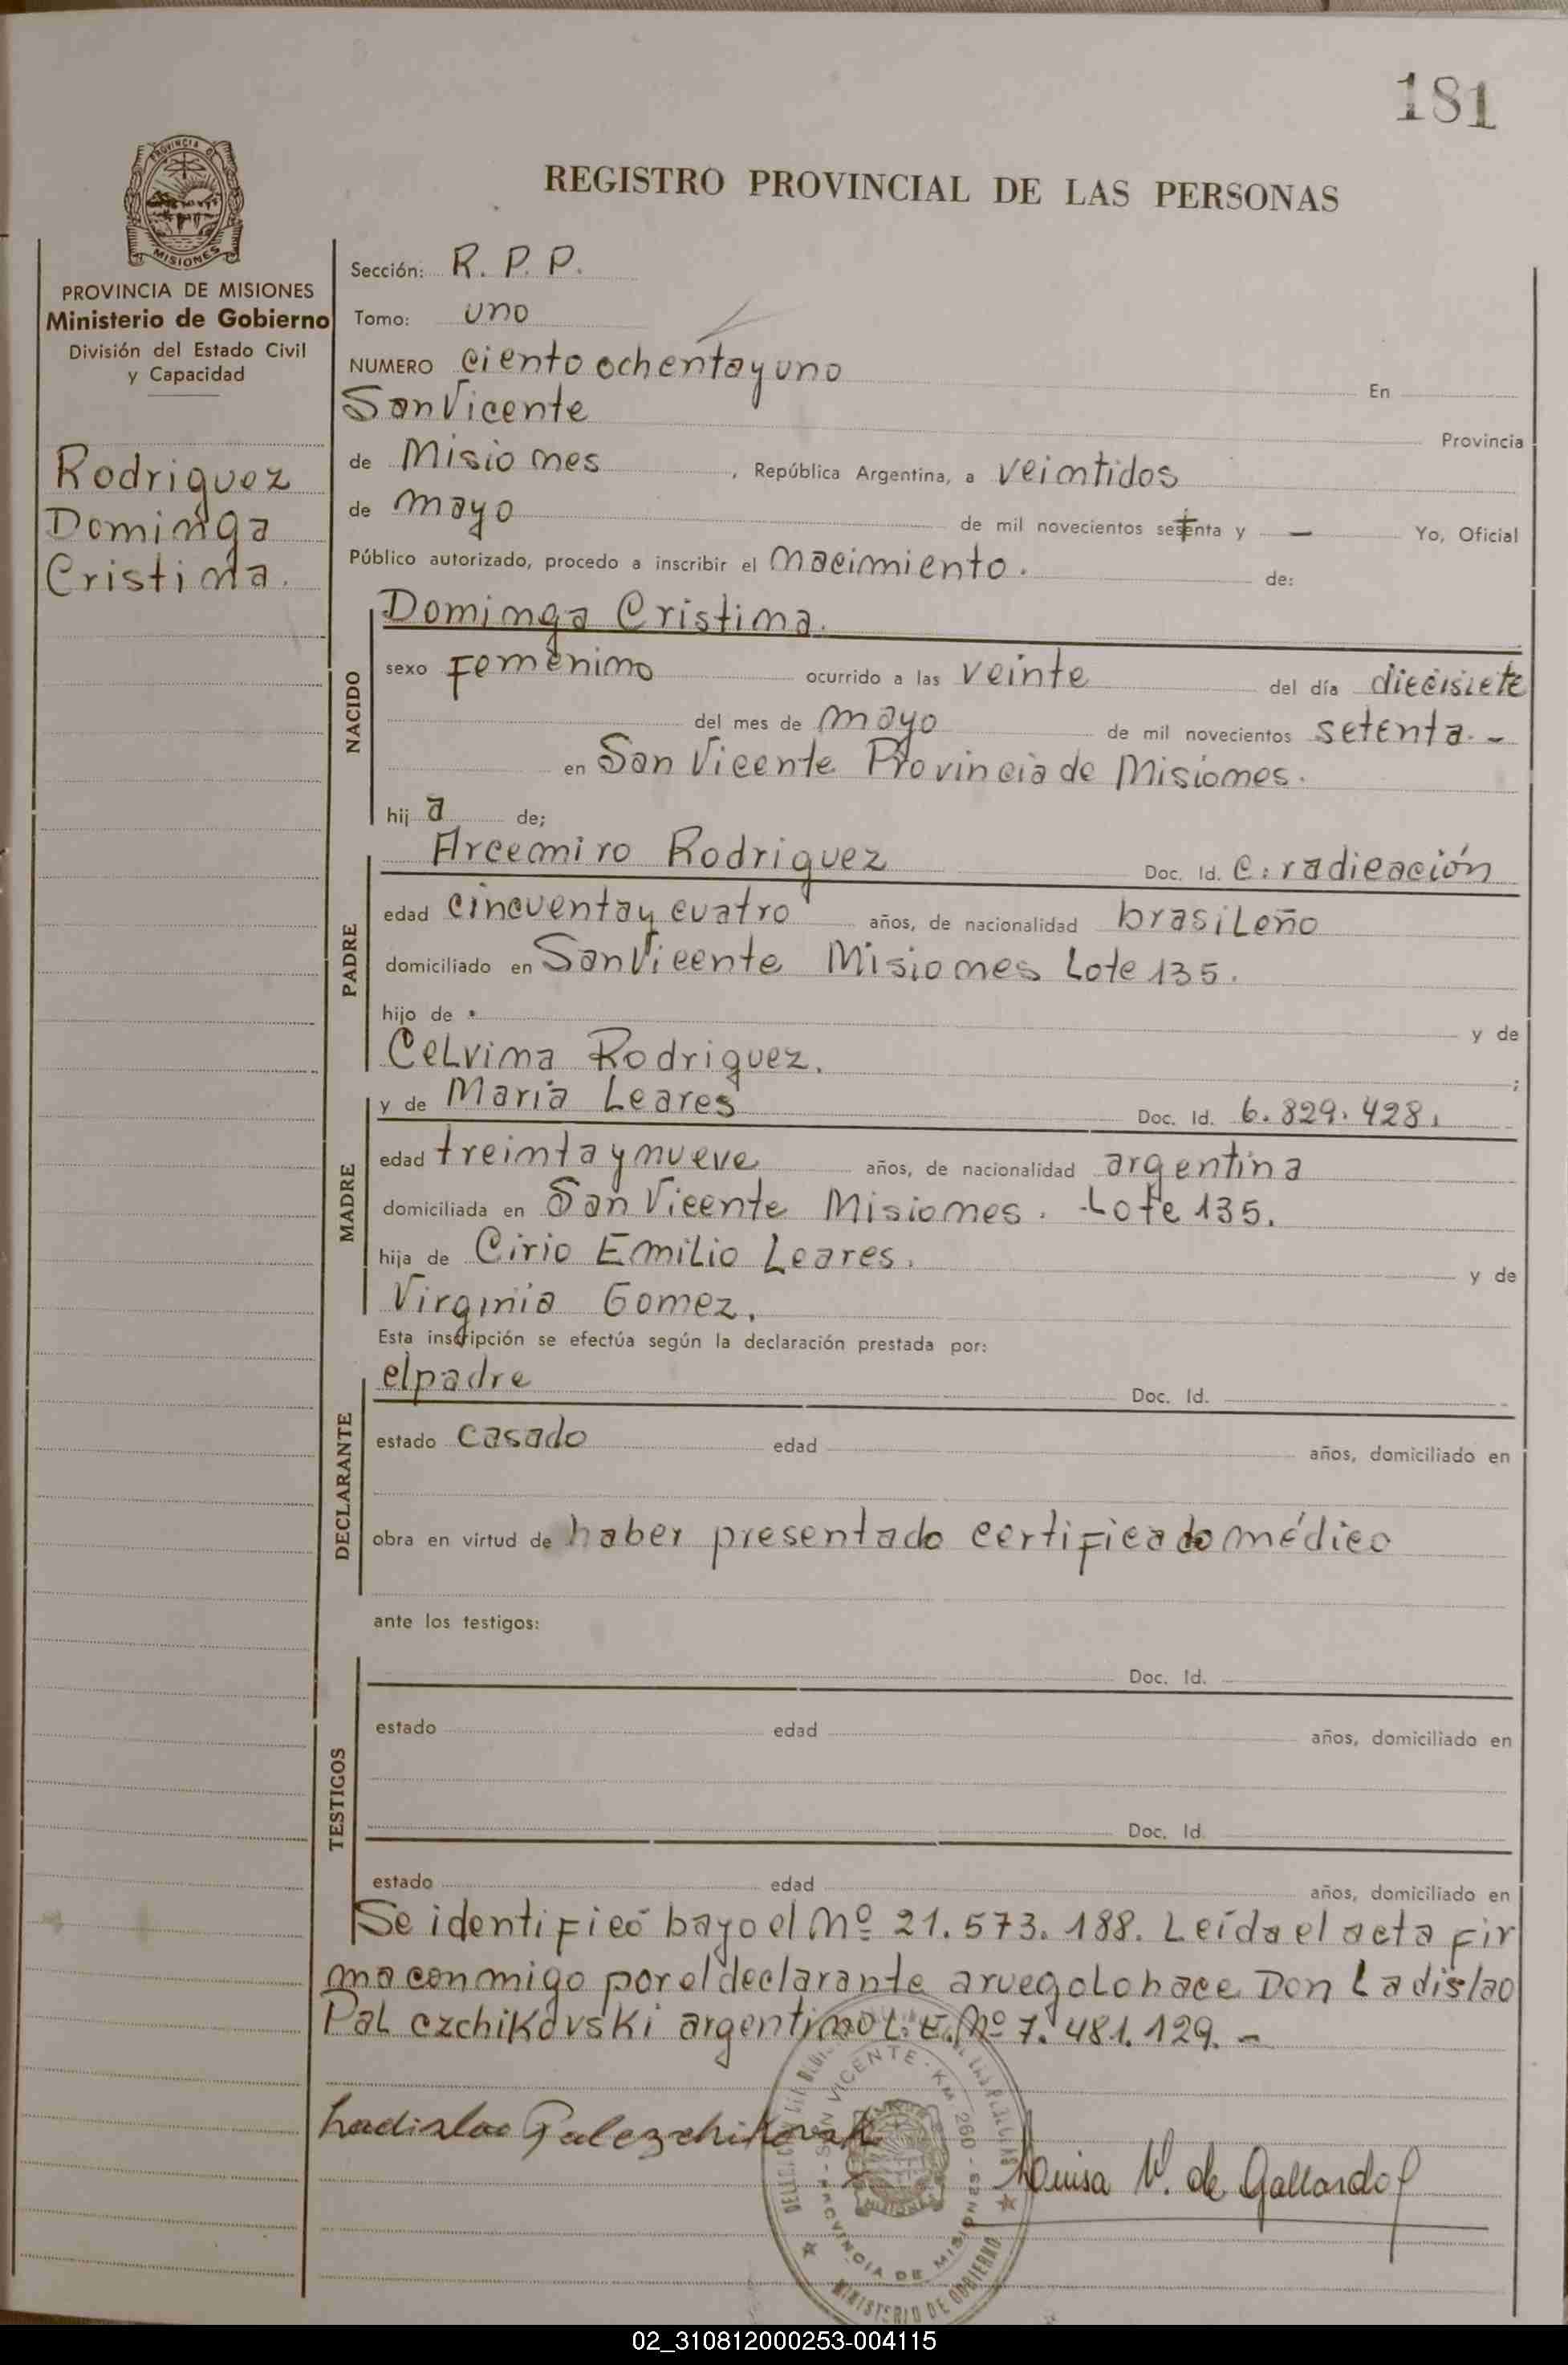 181
REGISTRO PROVINCIAL DE LAS PERSONAS
PROVINCIA DE MISIONES
Ministerio de Gobierno
División del Estado Civil
y Capacidad
Rodriguez
Dominga
Cristina.
Sección: R. P. P.
Tomo: uno
NUMERO ciento ochenta y uno En
San Vicente Provincia
de Misiones, República Argentina, a veintidos
de mayo de mil novecientos setenta y — Yo, Oficial
Público autorizado, procedo a inscribir el nacimiento. de:
NACIDO
Dominga Cristina.
sexo Femenino ocurrido a las veinte del día diecisiete
del mes de mayo de mil novecientos setenta.-
en San Vicente Provincia de Misiones.
hija de;
PADRE
Arcemiro Rodriguez Doc. Id. C. radicación
edad cincuenta y cuatro años, de nacionalidad brasileño
domiciliado en San Vicente Misiones Lote 135.
hijo de y de
Celvina Rodriguez. ;
MADRE
y de Maria Leares Doc. Id. 6.829.428.
edad treinta y nueve años, de nacionalidad argentina
domiciliada en San Vicente Misiones. Lote 135.
hija de Cirio Emilio Leares. y de
Virginia Gomez.
Esta inscripción se efectúa según la declaración prestada por:
DECLARANTE
el padre Doc. Id.
estado casado edad años, domiciliado en
obra en virtud de haber presentado certificado médico
ante los testigos:
TESTIGOS
Doc. Id.
estado edad años, domiciliado en
Doc. Id.
estado edad años, domiciliado en
Se identificó bayo el Nº 21.573.188. Leída el acta fir
ma conmigo por el declarante a ruego lo hace Don Ladislao
Palczchikovski argentino L. E. Nº 7.481.129.-
Ladislao Palczchikovski
Luisa V. de Gallardo
SAN VICENTE - KM 260 - MISIONES
PROVINCIA DE MISIONES
MINISTERIO DE GOBIERNO
02_310812000253-004115